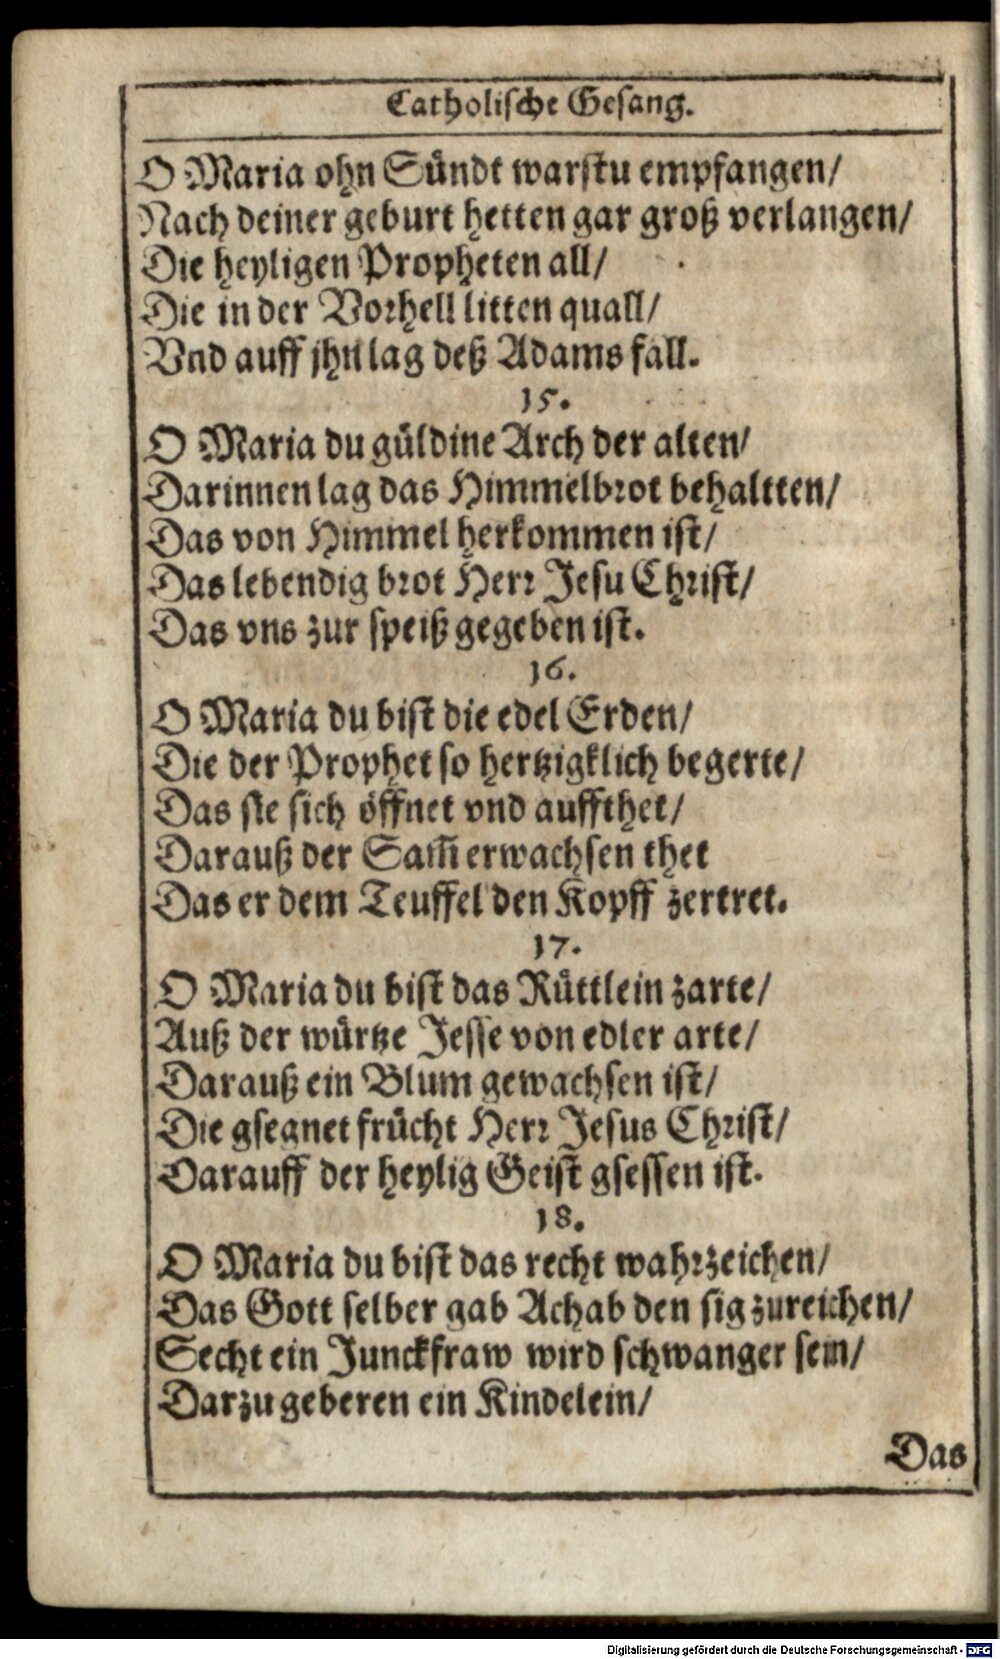 Catholische Gesang.
O Maria ohn Sündt warstu empfangen/
Nach deiner geburt hetten gar groß verlangen/
Die heyligen Propheten all/
Die in der Vorhell litten quall/
Vnd auff jhn lag deß Adams fall.
15.
O Maria du güldine Arch der alten/
Darinnen lag das Himmelbrot behaltten/
Das von Himmel herkommen ist/
Das lebendig brot Herr Jesu Christ/
Das vns zur speiß gegeben ist.
16.
O Maria du bist die edel Erden/
Die der Prophet so hertzigklich begerte/
Das sie sich öffnet vnd auffthet/
Darauß der Sam̃ erwachsen thet
Das er dem Teuffel den Kopff zertret.
17.
O Maria du bist das Rüttlein zarte/
Auß der würtze Jesse von edler arte/
Darauß ein Blum gewachsen ist/
Die gsegnet frücht Herr Jesus Christ/
Darauff der heylig Geist gsessen ist.
18.
O Maria du bist das recht wahrzeichen/
Das Gott selber gab Achab den sig zureichen/
Secht ein Junckfraw wird schwanger sein/
Darzu geberen ein Kindelein/
Das
Digitalisierung gefördert durch die Deutsche Forschungsgemeinschaft - DFG